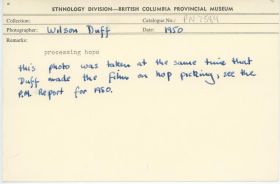 ETHNOLOGY DIVISION—BRITISH COLUMBIA PROVINCIAL MUSEUM
Collection: Catalogue No.: PN 7584
Photographer: Wilson Duff Date: 1950
Remarks:
processing hops
this photo was taken at the same time that
Duff made the film on hop picking, see the
P.M. Report for 1950.